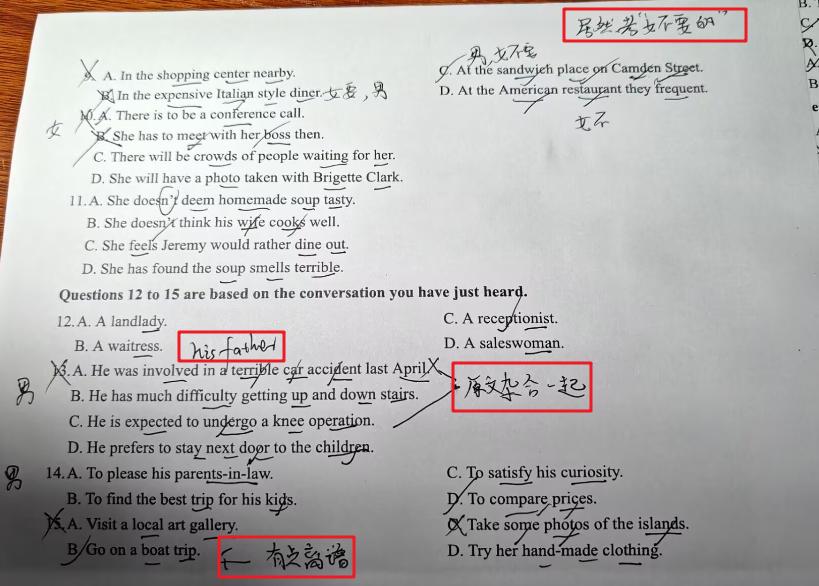 居然考"女不要的"
男,女不要
9. A. In the shopping center nearby.
C. At the sandwich place on Camden Street.
B. In the expensive Italian style diner. 女要,男
D. At the American restaurant they frequent.
10. A. There is to be a conference call.
女不
女
B. She has to meet with her boss then.
C. There will be crowds of people waiting for her.
D. She will have a photo taken with Brigette Clark.
11. A. She doesn't deem homemade soup tasty.
B. She doesn't think his wife cooks well.
C. She feels Jeremy would rather dine out.
D. She has found the soup smells terrible.
Questions 12 to 15 are based on the conversation you have just heard.
12. A. A landlady.
C. A receptionist.
B. A waitress.
his father
D. A saleswoman.
13. A. He was involved in a terrible car accident last April
男
B. He has much difficulty getting up and down stairs.
原文杂合一起
C. He is expected to undergo a knee operation.
D. He prefers to stay next door to the children.
男
14. A. To please his parents-in-law.
C. To satisfy his curiosity.
B. To find the best trip for his kids.
D. To compare prices.
15. A. Visit a local art gallery.
C. Take some photos of the islands.
B. Go on a boat trip.
有点离谱
D. Try her hand-made clothing.
B.
C
D.
A
B
e
A
B